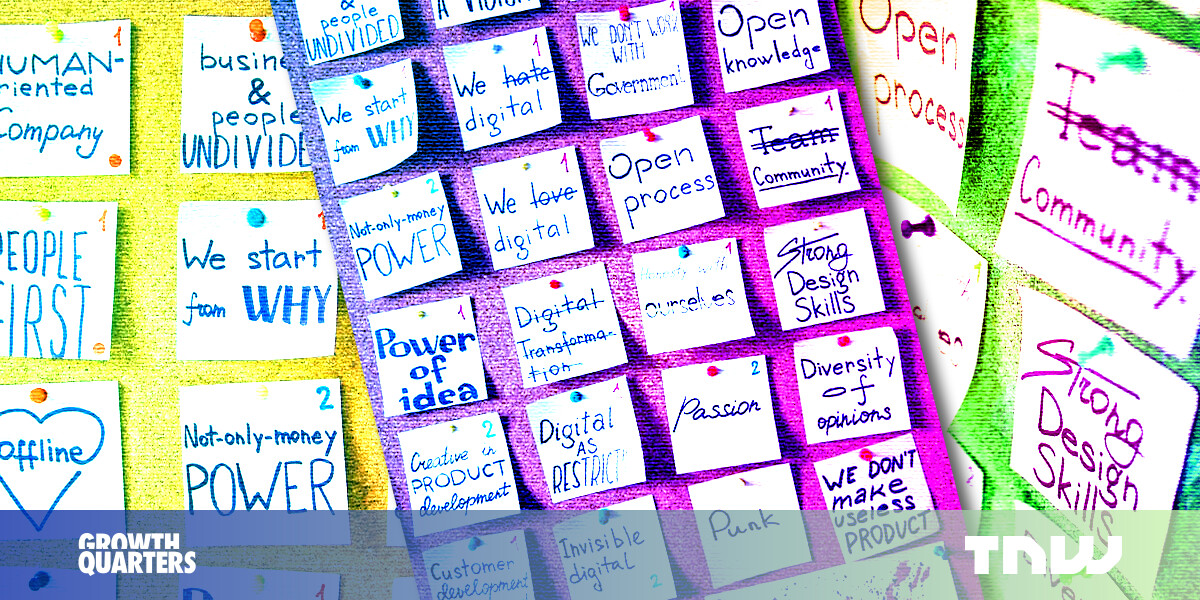 HUMAN-
oriented
Company
1
busine
&
people
UNDIVIDE
PEOPLE
FIRST
1
We start
from WHY
1
offline
Not-only-money
POWER
2
&
people
UNDIVIDED
We start
from WHY
Not-only-money
POWER
2
Power
of
idea
1
Creative in
PRODUCT
development
2
Customer
development
We hate
digital
1
We love
digital
1
Digital
Transforma-
tion
1
Digital
AS
RESTRICT
1
Invisible
digital
2
We DON'T WORK
WITH
Government
1
Open
process
ourselves
1
Passion
2
Punk
Open
knowledge
Team
Community.
1
Strong
Design
Skills
Diversity
of
opinions
WE DON'T
make
useless
PRODUCT
Open
process
Team
Community.
Strong
Design
Skills
GROWTH
QUARTERS
TNW